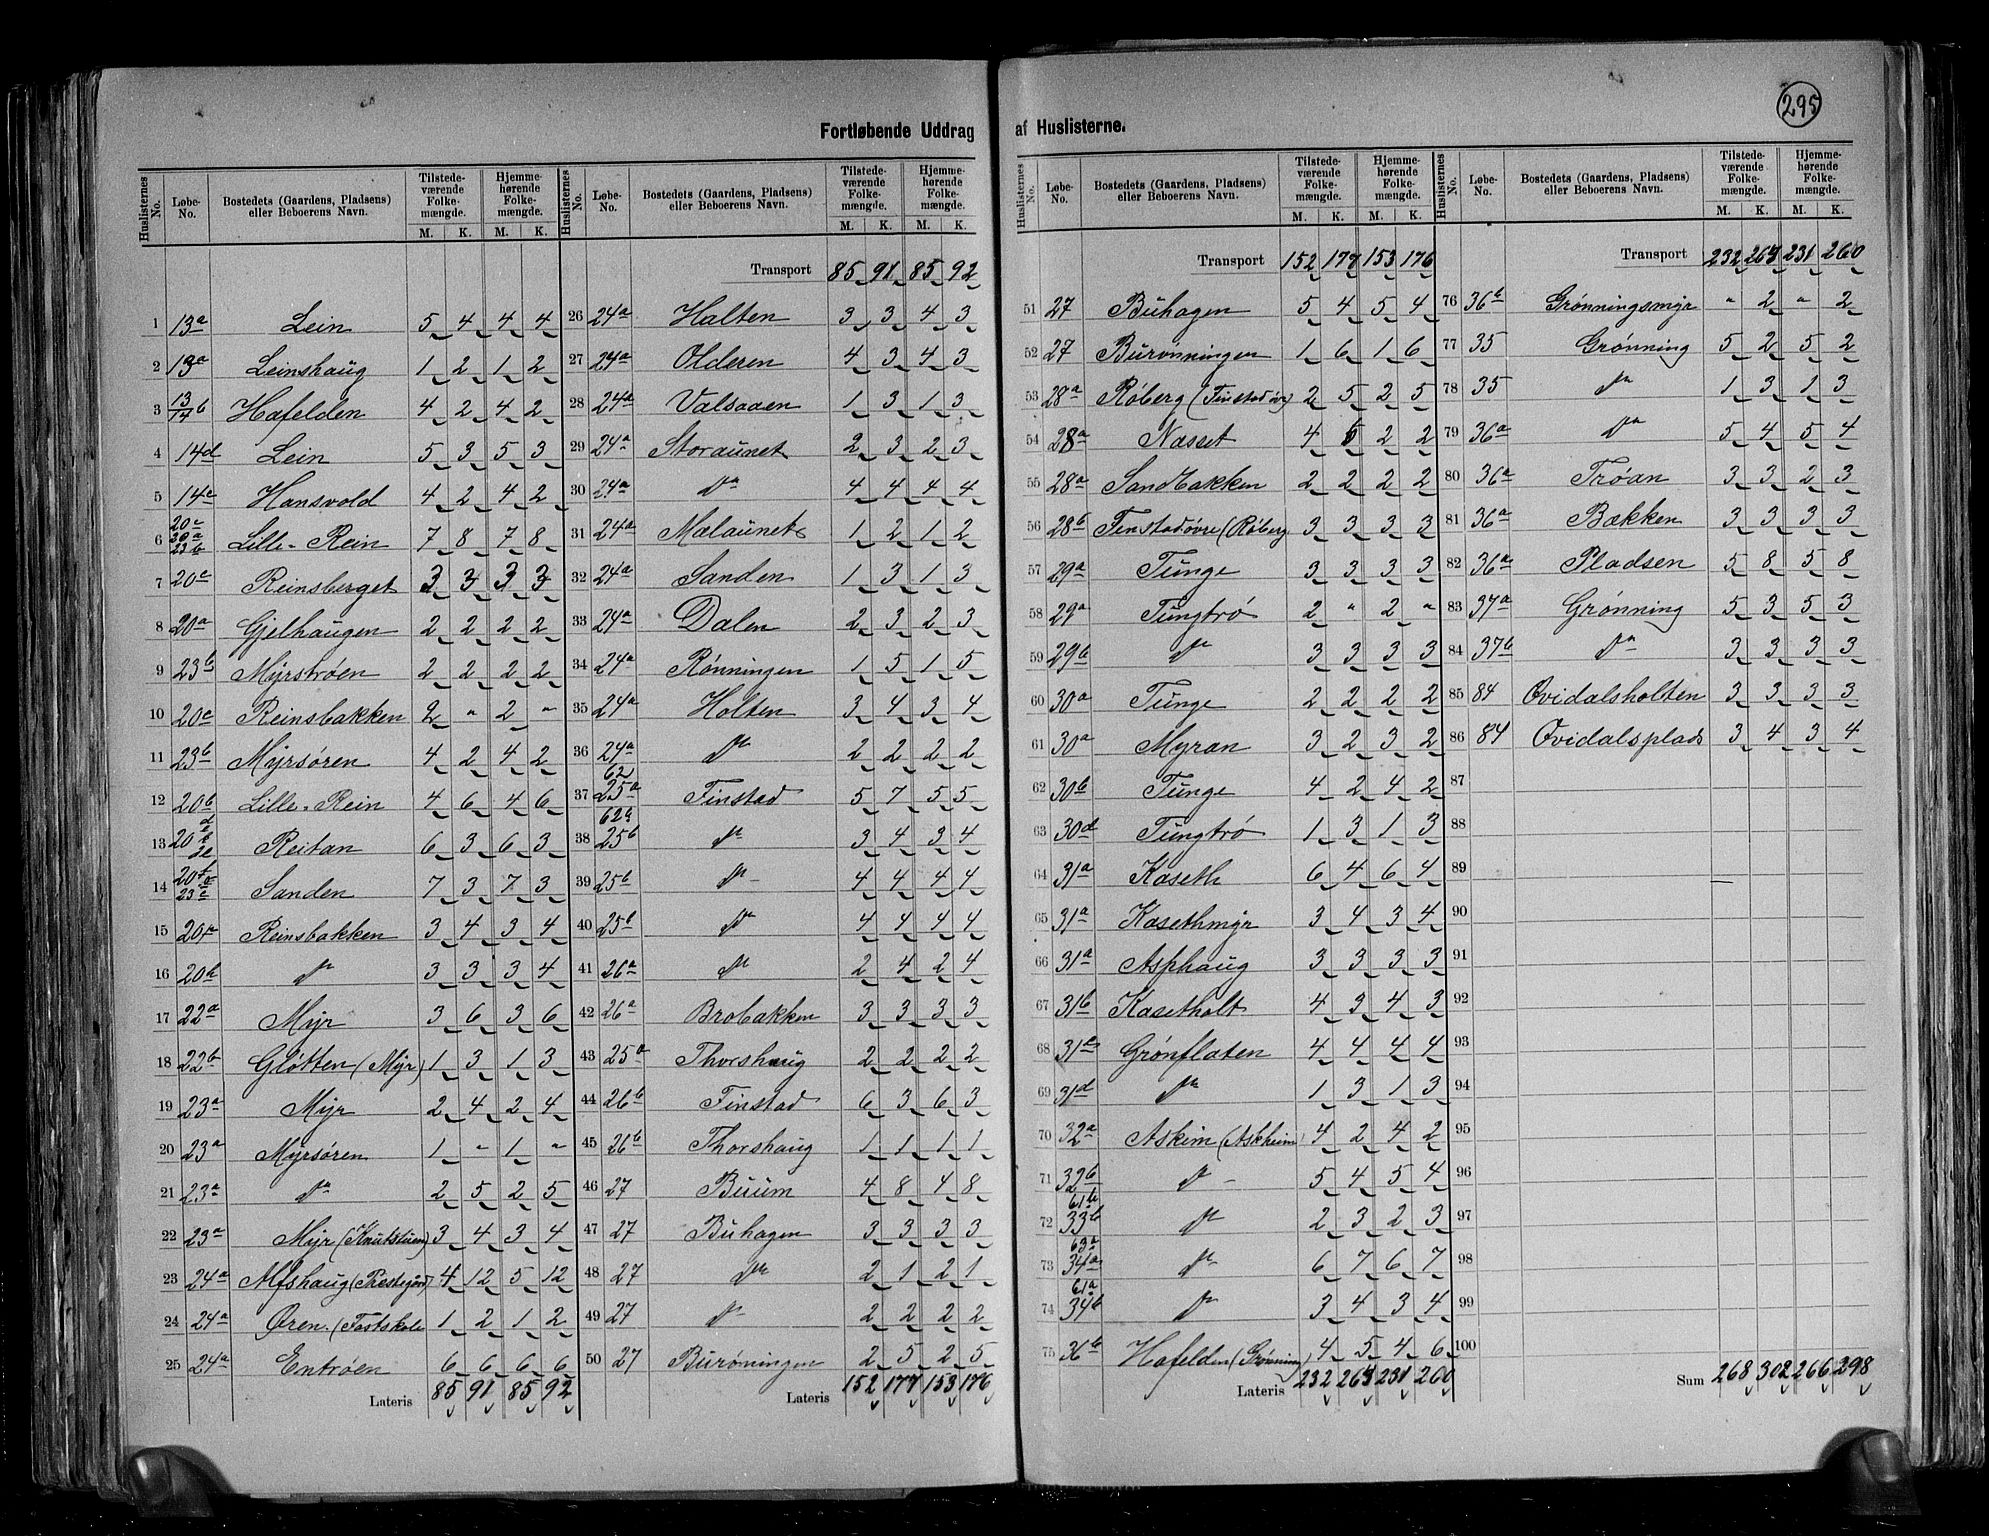 295
Fortløbende Uddrag af Huslisterne.
Huslisternes No. Løbe-No. Bostedets (Gaardens, Pladsens) eller Beboerens Navn. Tilstedeværende Folkemængde. Hjemmehørende Folkemængde.
M. K. M. K.
1 13a Lein 5 4 4 4
2 13a Leinshaug 1 2 1 2
3 13/14 b Hafelden 4 2 4 2
4 14d Lein 5 3 5 3
5 14c Hansvold 4 2 4 2
6 Lille-Rein 7 8 7 8
7 20c Reinsberget 3 3 3 3
8 20a Gjelhaugen 2 2 2 2
9 23b Myrstrøen 2 2 2 2
10 20c Reinsbakken 2 " 2 "
11 23b Myrsøren 4 2 4 2
12 20b Lille-Rein 4 6 4 6
13 Reitan 6 3 6 3
14 Sanden 7 3 7 3
15 Reinsbakken 3 4 3 4
16 20h Do 3 3 3 4
17 22a Myr 3 6 3 6
18 22b Gløtten (Myr) 1 3 1 3
19 23a Myr 2 4 2 4
20 23a Myrsøren 1 " 1 "
21 23a Do 2 5 2 5
22 23a Myr (Knutstuen) 3 4 3 4
23 24a (Prestegård) 4 12 5 12
24 24a Øren (Fastskole 1 2 1 2
25 24a Entrøen 6 6 6 6
Lateris 85 91 85 92
Huslisternes No. Løbe-No. Bostedets (Gaardens, Pladsens) eller Beboerens Navn. Tilstedeværende Folkemængde. Hjemmehørende Folkemængde.
M. K. M. K.
Transport 85 91 85 92
26 24a Halten 3 3 4 3
27 24a Olderen 4 3 4 3
28 24a Valsaaen 1 3 1 3
29 24a Storaunet 2 3 2 3
30 24a Do 4 4 4 4
31 24a Mælaunet 1 2 1 2
32 24a Sanden 1 3 1 3
33 24a Dalen 2 3 2 3
34 24a Rønningen 1 5 1 5
35 24a Holten 3 4 3 4
36 24a Do 2 2 2 2
37 62 25a Finstad 5 7 5 5
38 62a 25b Do 3 4 3 4
39 25b Do 4 4 4 4
40 25b Do 4 4 4 4
41 26a Do 2 4 2 4
42 26a Brobakken 3 3 3 3
43 25a Thorshaug 2 2 2 2
44 26b Finstad 6 3 6 3
45 26b Thorshaug 1 1 1 1
46 27 Buum 4 8 4 8
47 27 Buhagen 3 3 3 3
48 27 Do 2 1 2 1
49 27 Do 2 2 2 2
50 27 Burøningen 2 5 2 5
Lateris 152 177 153 176
Huslisternes No. Løbe-No. Bostedets (Gaardens, Pladsens) eller Beboerens Navn. Tilstedeværende Folkemængde. Hjemmehørende Folkemængde.
M. K. M. K.
Transport 152 177 153 176
51 27 Buhagen 5 4 5 4
52 27 Burönningen 1 6 1 6
53 28a Røberg (Finstadøv) 2 5 2 5
54 28a Næsset 4 2 2
55 28a Sandbakken 2 2 2 2
56 28b Finstadøvre (Røberg 3 3 3 3
57 29a Tunge 3 3 3 3
58 29a Tungtrø 2 " 2 "
59 29b Do 3 3 3 3
60 30a Tunge 2 2 2 2
61 30a Myran 3 2 3 2
62 30b Tunge 4 2 4 2
63 30d Tungtrø 1 3 1 3
64 31a Kaseth 6 4 6 4
65 31a Kasethmyr 3 4 3 4
66 31a Asphaug 3 3 3 3
67 31b Kasetholt 4 3 4 3
68 31c Grønflaten 4 4 4 4
69 31d Do 1 3 1 3
70 32a Askim (Askheim) 4 2 4 2
71 32b Do 5 4 5 4
72 61b 33b Do 2 3 2 3
73 63a 34a Do 6 7 6 7
74 61a 34b Do 3 4 3 4
75 36b Hafelden (Grønning) 4 5 4 6
Lateris 232 231 260
Huslisternes No. Løbe-No. Bostedets (Gaardens, Pladsens) eller Beboerens Navn. Tilstedeværende Folkemængde. Hjemmehørende Folkemængde.
M. K. M. K.
Transport 232 231 260
76 36b Grønningsmyr " 2 " 2
77 35 Grønning 5 2 5 2
78 35 Do 1 3 1 3
79 36a Do 5 4 5 4
80 36a Trøan 3 3 2 3
81 36a Bækken 3 3 3 3
82 36a Pladsen 5 8 5 8
83 37a Grønning 5 3 5 3
84 37b Do 3 3 3 3
85 84 Ovidalsholten 3 3 3 3
86 84 Ovidalsplads 3 4 3 4
87
88
89
90
91
92
93
94
95
96
97
98
99
100
Sum 268 302 266 298